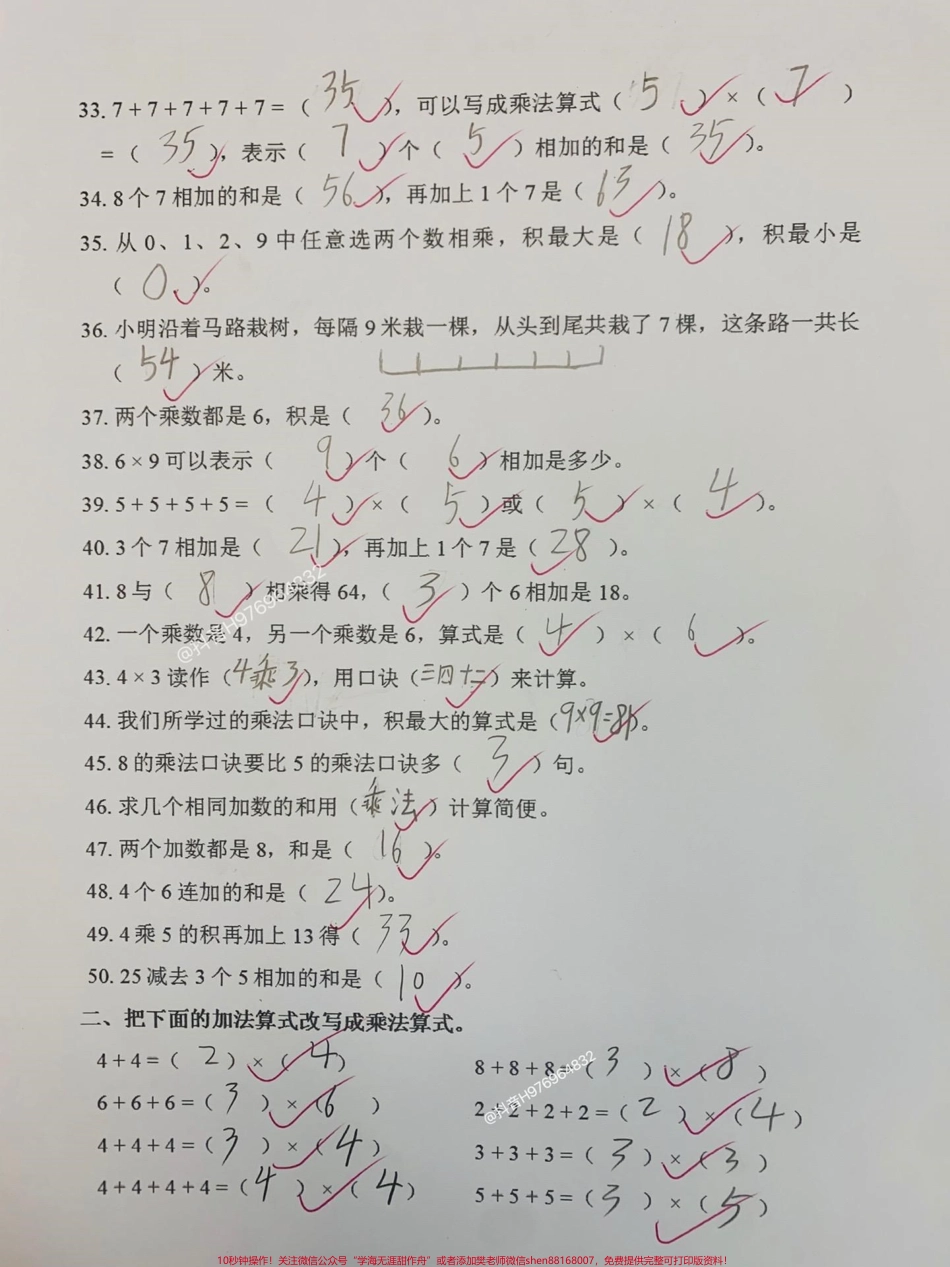 33. 7 + 7 + 7 + 7 + 7 = ( 35 ), 可以写成乘法算式 ( 5 ) × ( 7 )
= ( 35 ), 表示 ( 7 ) 个 ( 5 ) 相加的和是 ( 35 )。
34. 8 个 7 相加的和是 ( 56 ), 再加上 1 个 7 是 ( 63 )。
35. 从 0、1、2、9 中任意选两个数相乘，积最大是 ( 18 )，积最小是
( 0 )。
36. 小明沿着马路栽树，每隔 9 米栽一棵，从头到尾共栽了 7 棵，这条路一共长
( 54 ) 米。
37. 两个乘数都是 6，积是 ( 36 )。
38. 6 × 9 可以表示 ( 9 ) 个 ( 6 ) 相加是多少。
39. 5 + 5 + 5 + 5 = ( 4 ) × ( 5 ) 或 ( 5 ) × ( 4 )。
40. 3 个 7 相加是 ( 21 ), 再加上 1 个 7 是 ( 28 )。
41. 8 与 ( 8 ) 相乘得 64, ( 3 ) 个 6 相加是 18。
42. 一个乘数是 4，另一个乘数是 6，算式是 ( 4 ) × ( 6 )。
@抖音H976964832
43. 4 × 3 读作 ( 4乘3 ), 用口诀 ( 三四十二 ) 来计算。
44. 我们所学过的乘法口诀中，积最大的算式是 ( 9×9=81 )。
45. 8 的乘法口诀要比 5 的乘法口诀多 ( 3 ) 句。
46. 求几个相同加数的和用 ( 乘法 ) 计算简便。
47. 两个加数都是 8，和是 ( 16 )。
48. 4 个 6 连加的和是 ( 24 )。
49. 4 乘 5 的积再加上 13 得 ( 33 )。
50. 25 减去 3 个 5 相加的和是 ( 10 )。
二、把下面的加法算式改写成乘法算式。
4 + 4 = ( 2 ) × ( 4 )
8 + 8 + 8 = ( 3 ) × ( 8 )
@抖音H976964832
6 + 6 + 6 = ( 3 ) × ( 6 )
2 + 2 + 2 + 2 = ( 2 ) × ( 4 )
4 + 4 + 4 = ( 3 ) × ( 4 )
3 + 3 + 3 = ( 3 ) × ( 3 )
4 + 4 + 4 + 4 = ( 4 ) × ( 4 )
5 + 5 + 5 = ( 3 ) × ( 5 )
10秒钟操作！关注微信公众号“学海无涯甜作舟”或者添加樊老师微信shen88168007，免费提供完整可打印版资料！